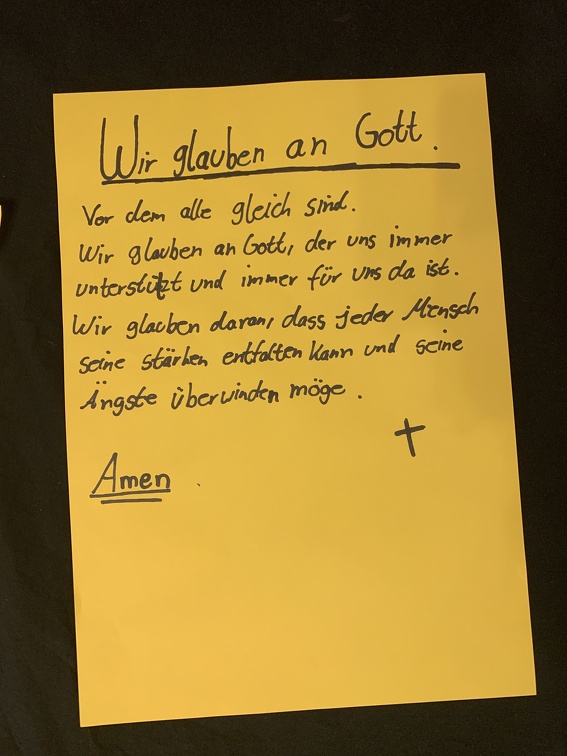 Wir glauben an Gott.
Vor dem alle gleich sind.
Wir glauben an Gott, der uns immer
unterstützt und immer für uns da ist.
Wir glauben daran, dass jeder Mensch
seine stärken entfalten kann und seine
Ängste überwinden möge.
Amen